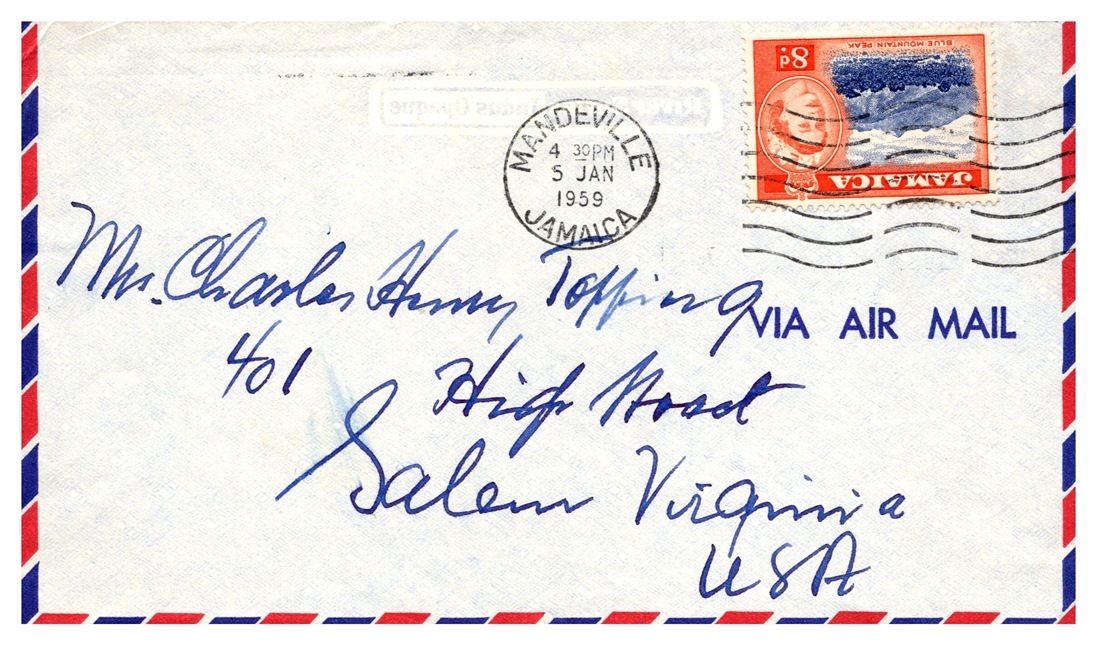 MANDEVILLE
4 30PM
5 JAN
1959
JAMAICA
8d.
BLUE MOUNTAIN PEAK
JAMAICA
Mr. Charles Henry Topping
VIA AIR MAIL
401 High Road
Salem Virginia
USA